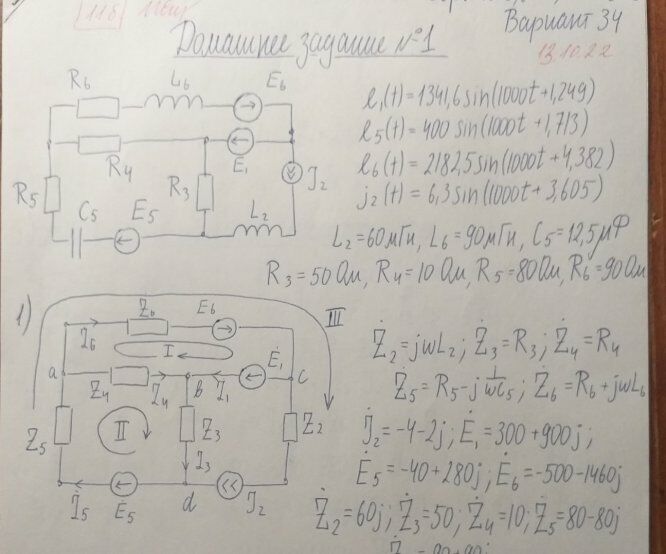 116
Вариант 34
13.10.22
Домашнее задание №1
R6 L6 E6
R4 E1
R5 R3 J2
C5 E5 L2
e1(t)=1341,6sin(1000t+1,249)
e5(t)=400sin(1000t+1,713)
e6(t)=2182,5sin(1000t+4,382)
j2(t)=6,3sin(1000t+3,605)
L2=60мГн, L6=90мГн, C5=12,5μФ
R3=50Ом, R4=10Ом, R5=80Ом, R6=90Ом
1)
Z6 E6 III
I6 I
a Z4 I4 b I1 Ė1 c
Z5 II Z3 Z2
I3
İ5 Ė5 d J2
Ż2=jωL2; Ż3=R3; Ż4=R4
Ż5=R5-j 1/ωC5; Ż6=R6+jωL6
J̇2=-4-2j; Ė1=300+900j;
Ė5=-40+280j; Ė6=-500-1460j
Ż2=60j; Ż3=50; Ż4=10; Ż5=80-80j